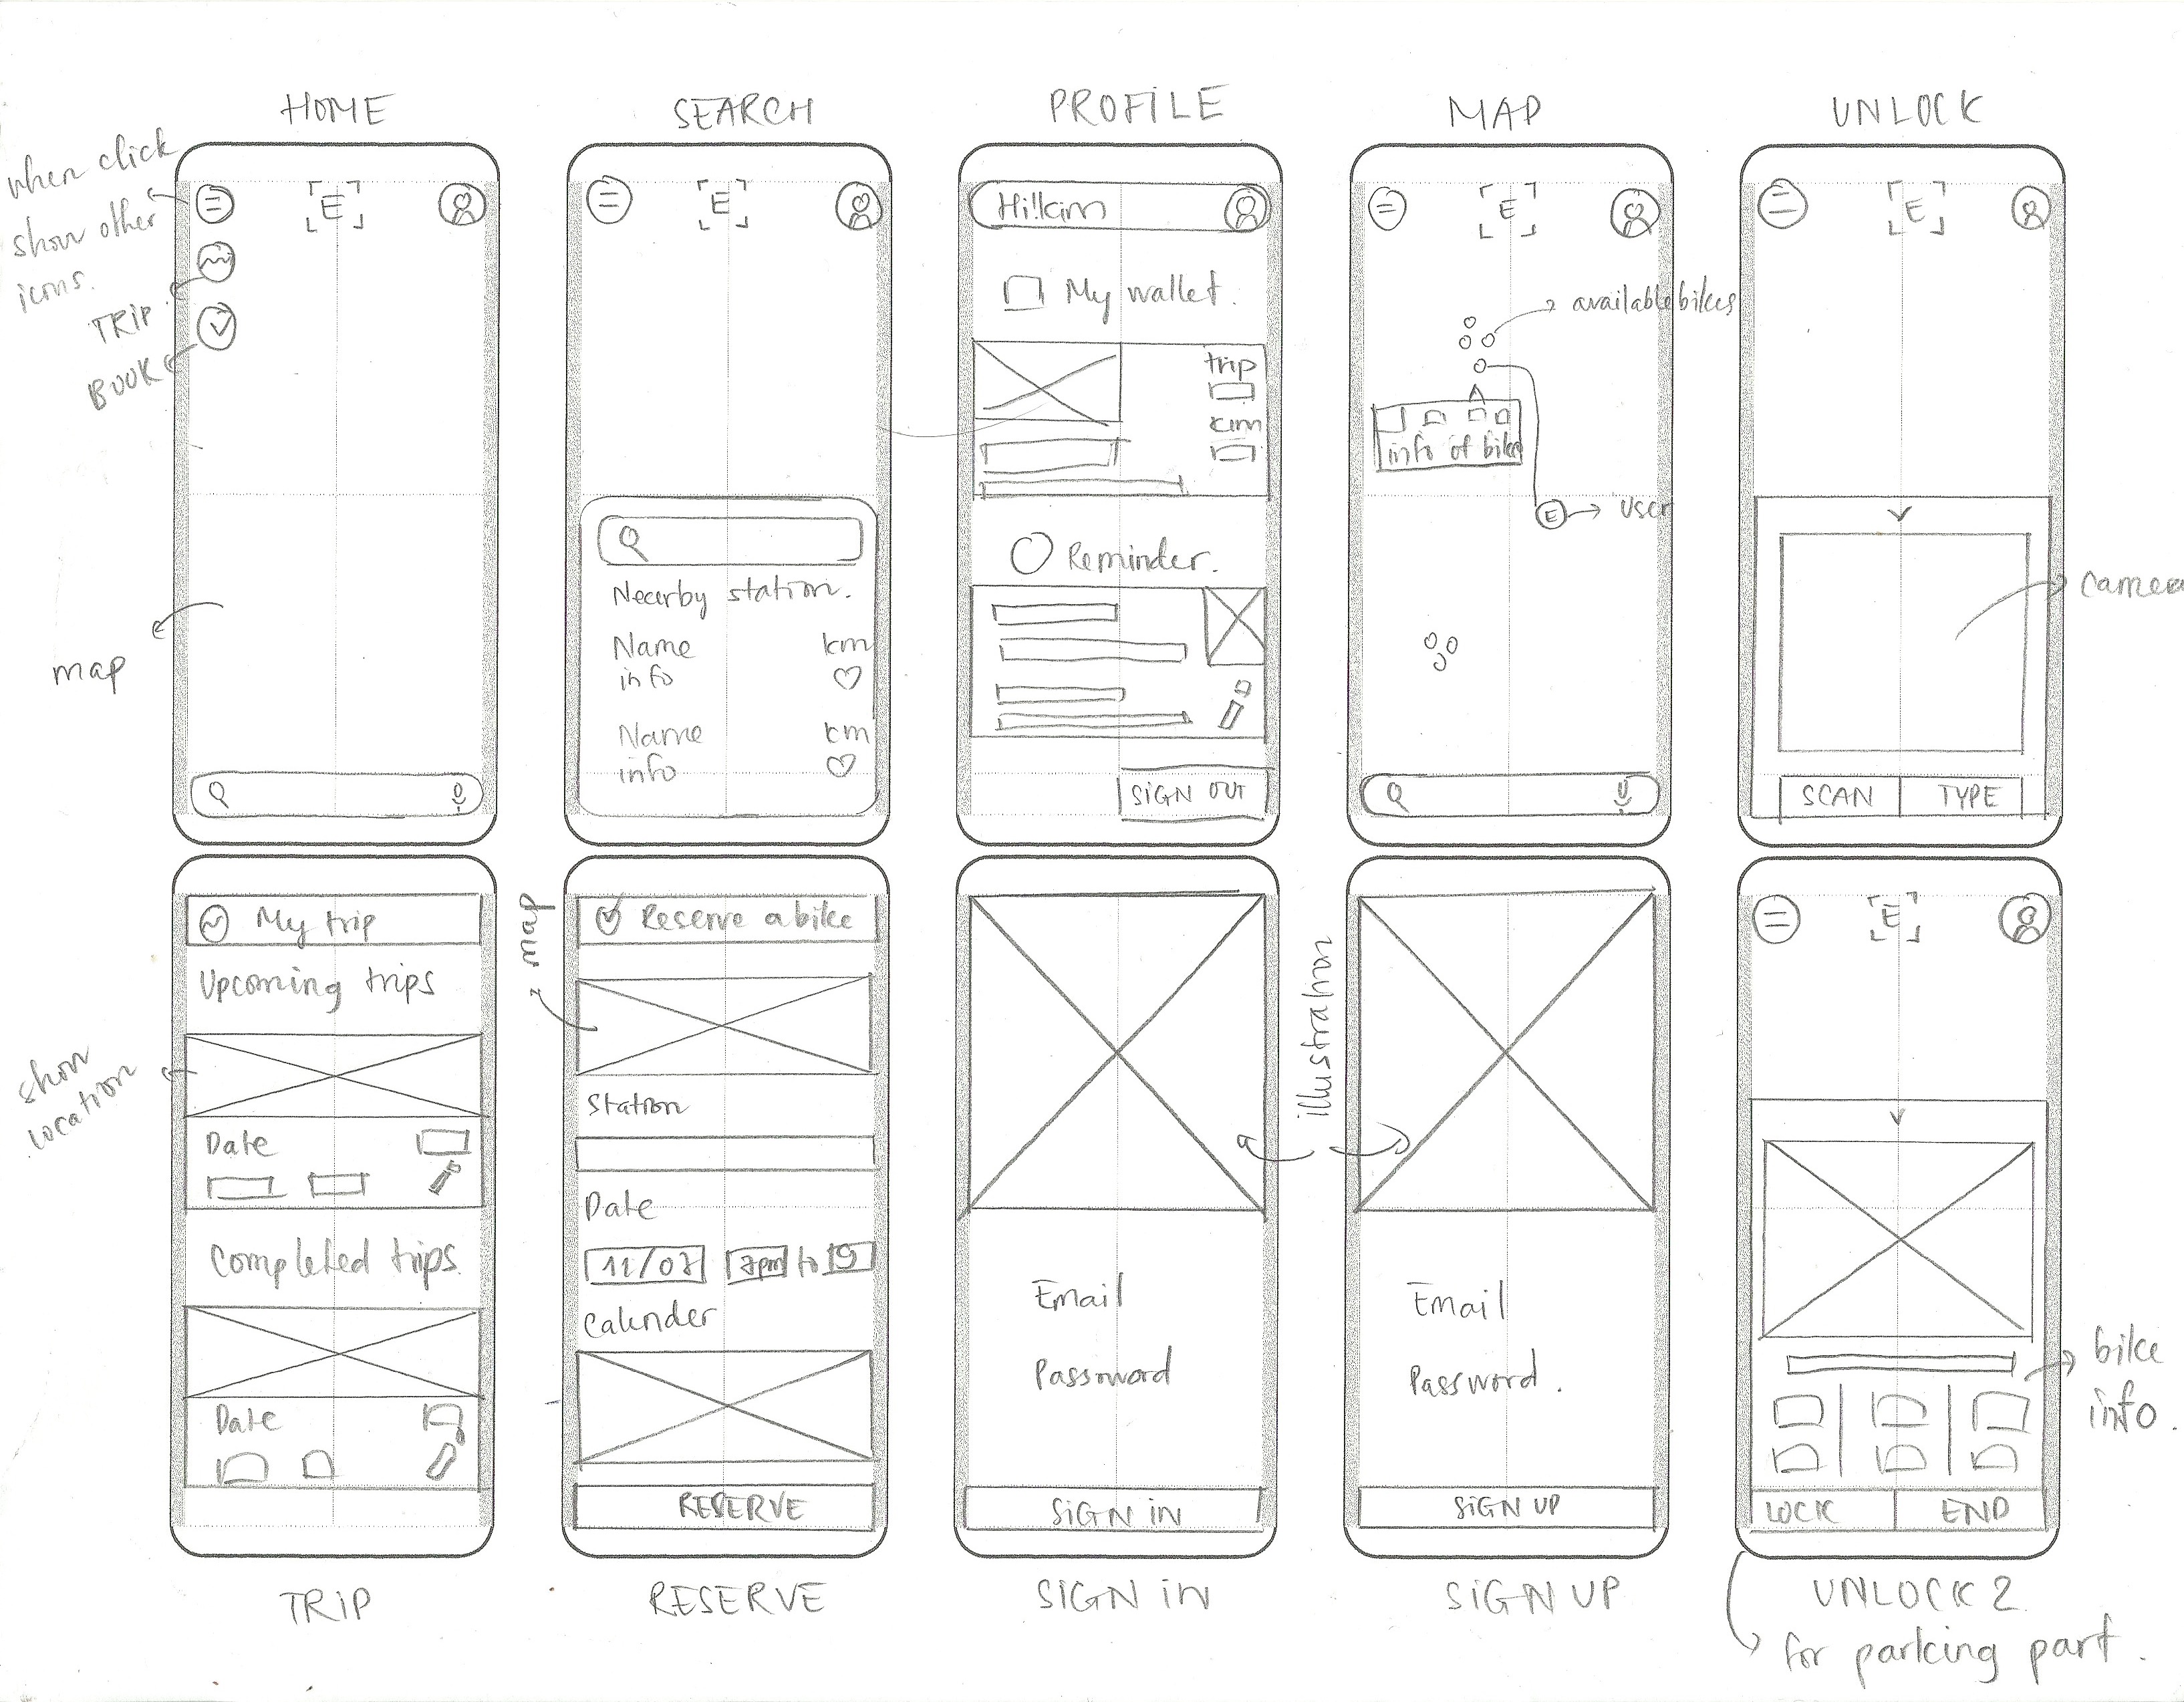 HOME
SEARCH
PROFILE
MAP
UNLOCK
when click
show other
icons.
TRIP.
BOOK
map
E
E
Nearby station.
Name km
info
Name km
info
Hi!kim
My wallet.
trip
km
Reminder.
SIGN OUT
E
available bikes
info of bike
E
user
E
camera
SCAN
TYPE
My trip
Upcoming trips
show
location
Date
Completed trips
Date
TRIP
map
Reserve a bike
Station
Date
11/07
7pm to 9
Calender
RESERVE
RESERVE
Email
Password
SIGN IN
SIGN IN
illustration
Email
Password.
SIGN UP
SIGN UP
E
bike
info.
LOCK
END
UNLOCK 2
for parking part.